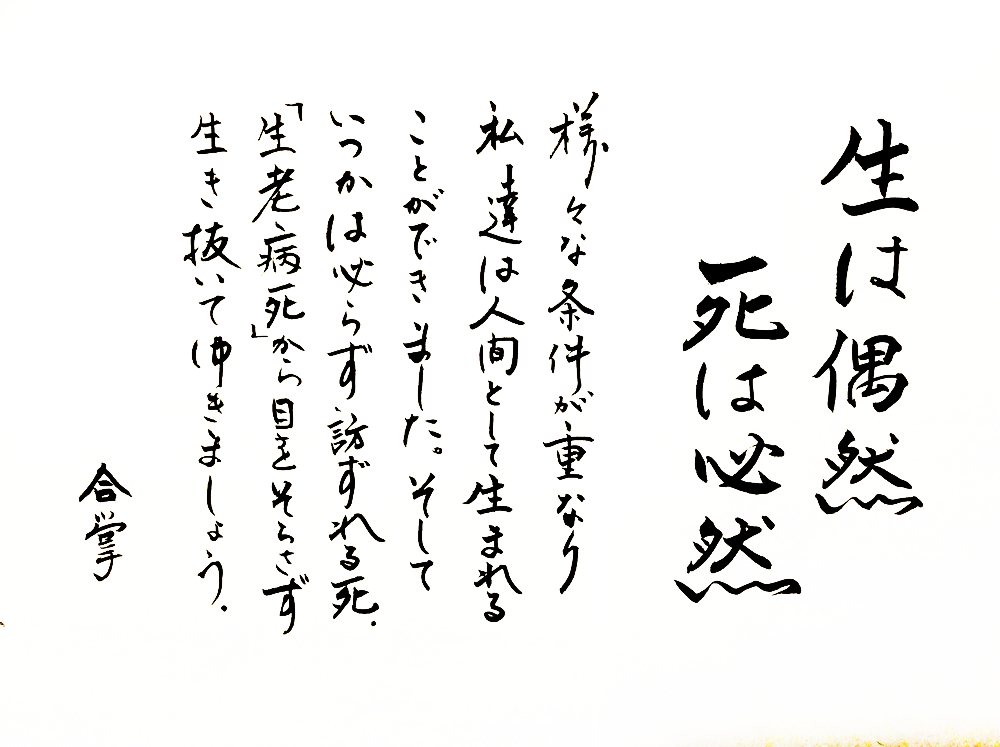 生は偶然
死は必然
様々な条件が重なり
私達は人間として生まれる
ことができました。そして
いつかは必らず訪ずれる死.
「生老病死」から目をそらさず
生き抜いてゆきましょう.
合掌